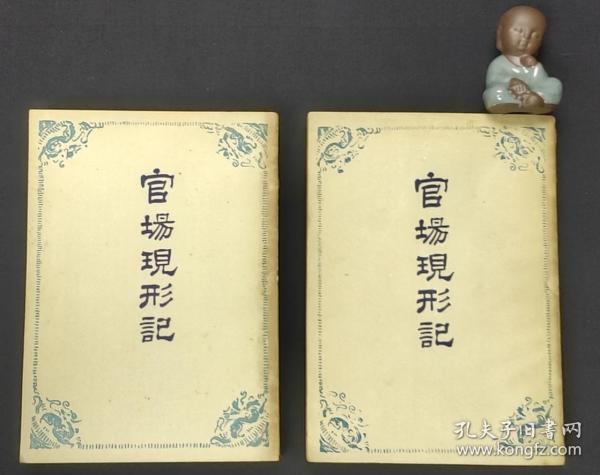 官場現形記
官場現形記
孔夫子旧书网
www.kongfz.com